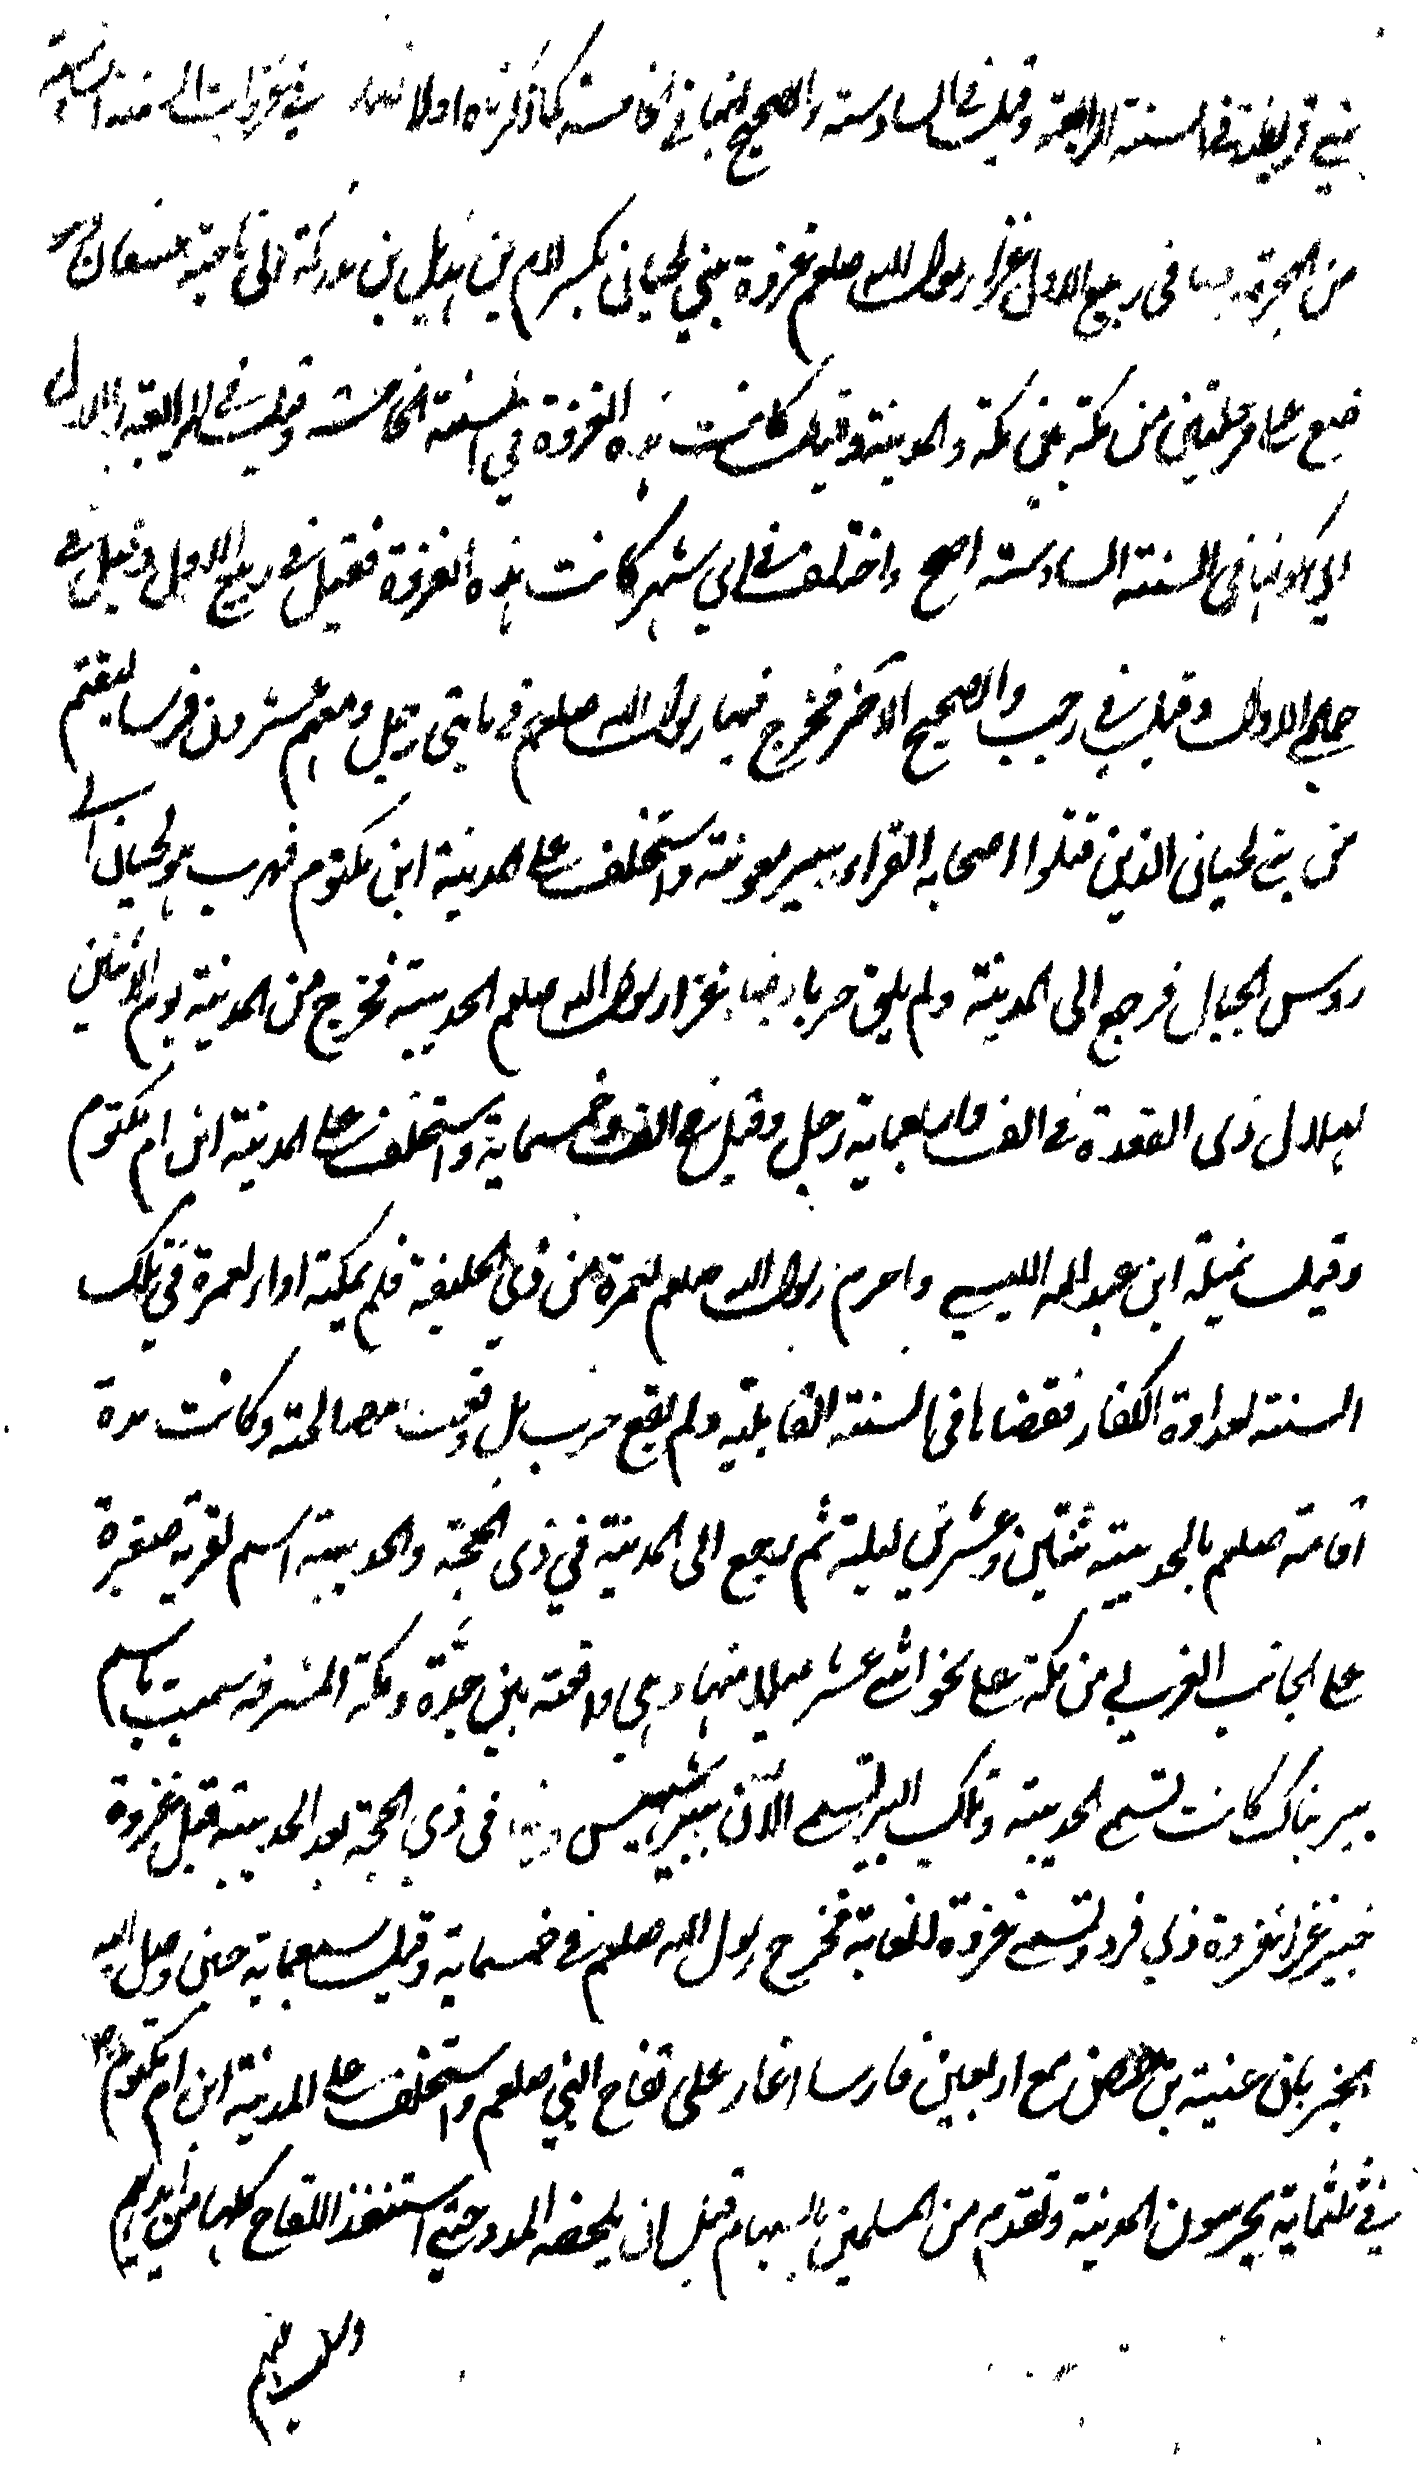 بني قريظة في السنة الرابعة وقيل في السادسة والصحيح انها في الخامسة كما ذكرناه اولا في غزوات السنة السادسة
من الهجرة في ربيع الاول غزا رسول الله صلعم غزوة بني لحيان بكسر اللام بن هذيل بن مدركة الى ناحية عسفان
ضع على مرحلتين من مكة بين مكة والمدينة وقيل كانت هذه الغزوة في السنة الخامسة وقيل في الرابعة والاول
اي كونها في السنة السادسة اصح واختلف في اي شهر كانت هذه الغزوة فقيل في ربيع الاول وقيل في
جمادي الاولى وقيل في رجب والصحيح الاخر فخرج فيها رسول الله صلعم في مايتى رجل ومعهم عشرون فرسا لينتقم
من بني لحيان الذين قتلوا اصحابه القراء ببير معونة واستخلف على المدينة ابن مكتوم فهرب بنو لحيان الى
روس الجبال فرجع الى المدينة ولم يلق حربا وفيها غزا رسول الله صلعم الحديبية فخرج من المدينة يوم الاثنين
لهلال ذى القعدة في الف واربعماية رجل وقيل في الف وخمسماية واستخلف على المدينة ابن ام مكتوم
وقيل نميلة ابن عبد الله الليثي واحرم رسول الله صلعم لعمرة من ذي الحليفة فلم يمكنه اداء العمرة في تلك
السنة لعداوة الكفار فقضاها في السنة القابلة ولم يقع حرب بل وقعت مصالحة وكانت مدة
اقامة صلعم بالحديبية ثنتين وعشرين ليلة ثم رجع الى المدينة في ذى الحجة والحديبية اسم لقرية صغيرة
على الجانب الغربي من مكة على نحو اثنى عشر ميلا منها وهي واقعة بين جدة ومكة المشرفة سميت باسم
بير هناك كانت تسمى الحديبية وتلك البير تسمى الآن ببير شميس وفيها في ذي الحجة بعد الحديبية قبل غزوة
خيبر غزا غزوة ذي قرد وتسمى غزوة الغابة فخرج رسول الله صلعم في خمسماية وقيل سبعماية حين وصل اليه
الخبر بان عنية بن حصن مع اربعين فارسا اغار على لقاح النبي صلعم واستخلف على المدينة ابن ام مكتوم
في ثلثماية يحرسون المدينة وتقدم من المسلمين بالسهام قبل ان يلحقه المدد حتى استنقذ اللقاح كلها من ايديهم